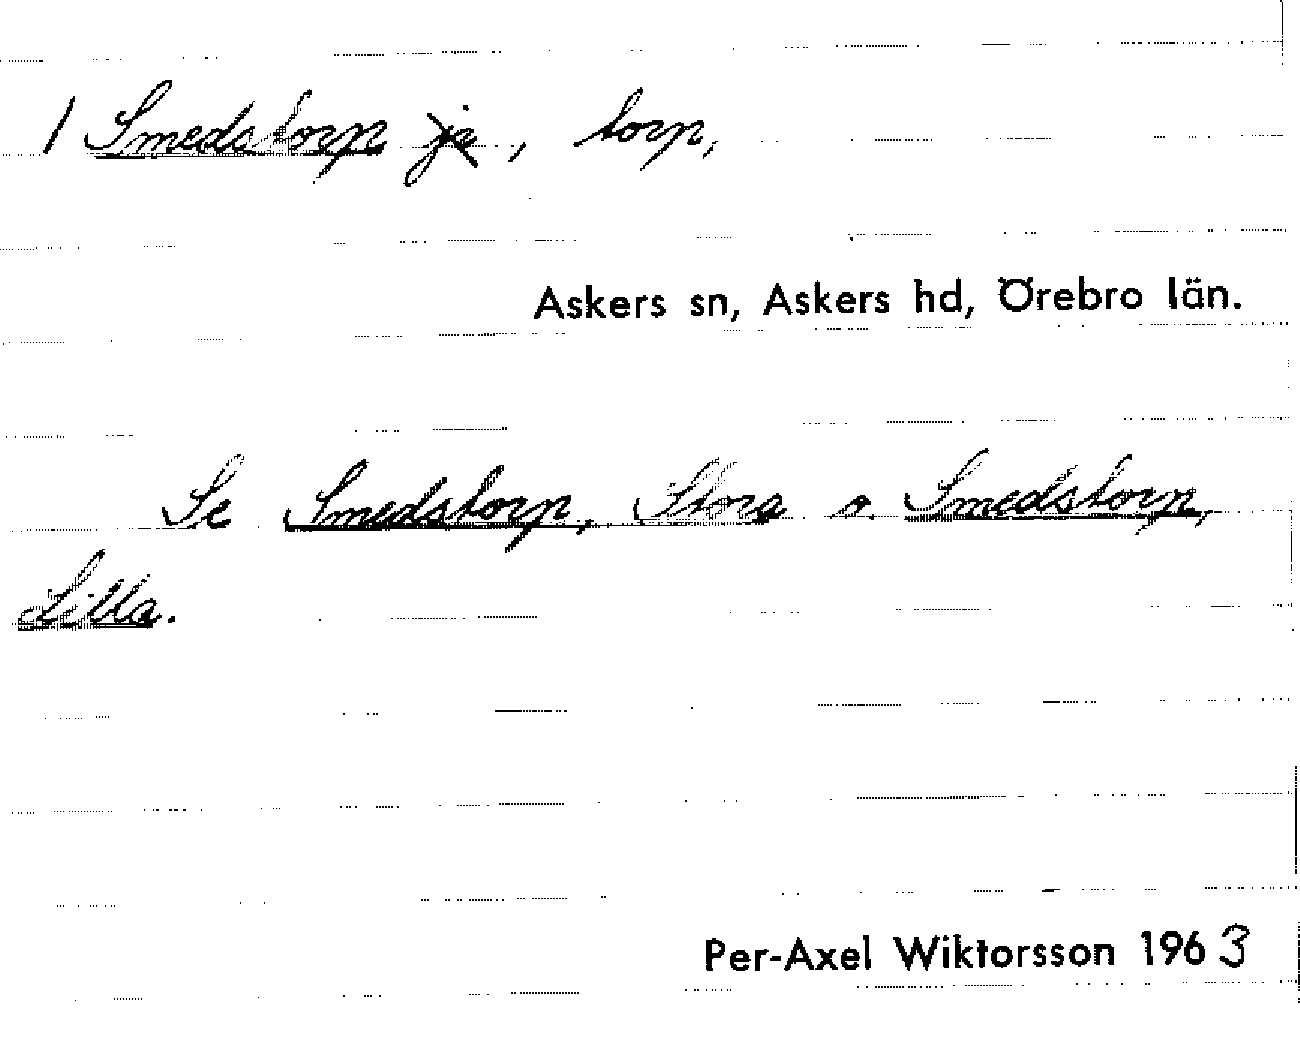 / Smedstorp, torp,
Askers sn, Askers hd, Örebro län.
Se Smedstorp, Stora o. Smedstorp,
Lilla.
Per-Axel Wiktorsson 1963